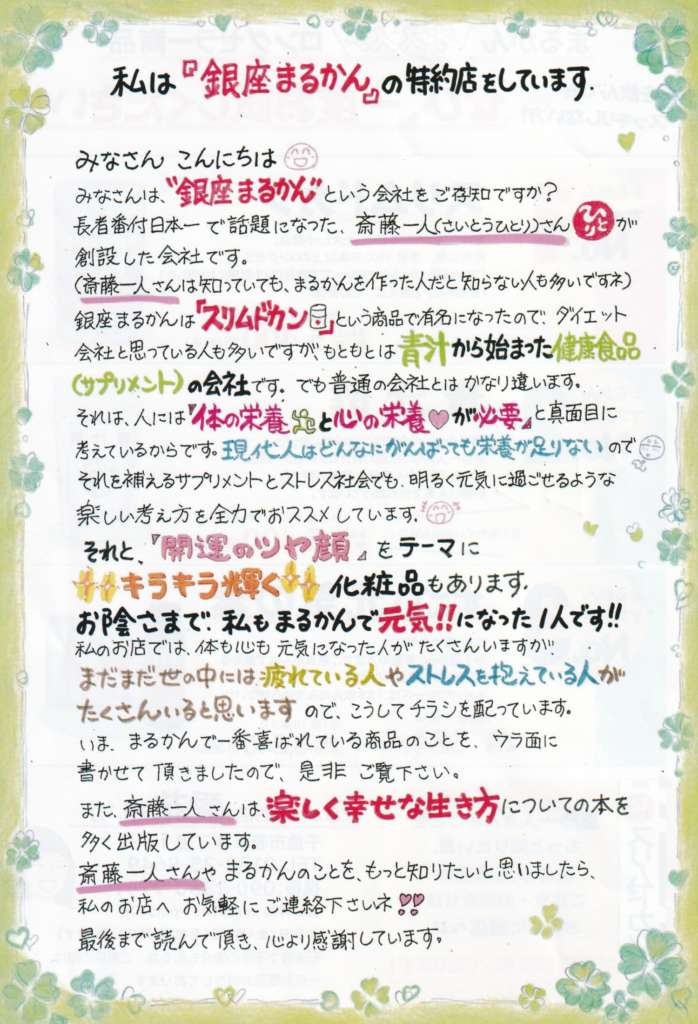 私は『銀座まるかん』の特約店をしています。
みなさん こんにちは
みなさんは、"銀座まるかん"という会社をご存知ですか?
長者番付日本一で話題になった、斎藤一人(さいとうひとり)さん ひとり が
創設した会社です。
(斎藤一人さんは知っていても、まるかんを作った人だと知らない人も多いですネ)
銀座まるかんは『スリムドカン』という商品で有名になったので、ダイエット
会社と思っている人も多いですが、もともとは青汁から始まった健康食品
(サプリメント)の会社です。でも普通の会社とはかなり違います。
それは、人には『体の栄養と心の栄養が必要』と真面目に
考えているからです。現代人はどんなにがんばっても栄養が足りないので
それを補えるサプリメントとストレス社会でも、明るく元気に過ごせるような
楽しい考え方を全力でおススメしています。
それと、『開運のツヤ顔』をテーマに
キラキラ輝く 化粧品もあります。
お陰さまで、私もまるかんで元気!!になった1人です!!
私のお店では、体も心も元気になった人がたくさんいますが、
まだまだ世の中には疲れている人やストレスを抱えている人が
たくさんいると思いますので、こうしてチラシを配っています。
いま、まるかんで一番喜ばれている商品のことを、ウラ面に
書かせて頂きましたので、是非ご覧下さい。
また、斎藤一人さんは、楽しく幸せな生き方についての本を
多く出版しています。
斎藤一人さんや、まるかんのことを、もっと知りたいと思いましたら、
私のお店へお気軽にご連絡下さいネ
最後まで読んで頂き、心より感謝しています。